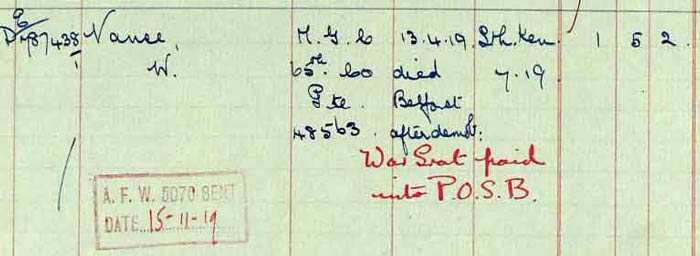 E
787438/1 Vance, M.G.C 13.4.19. Sth. Ken. 1 5 2.
W. 65th Co died 7.19
Pte. Belfast
48563. after demob:
War Grat paid
into P.O.S.B.
A. F. W. 5070 SENT
DATE...15-11-19